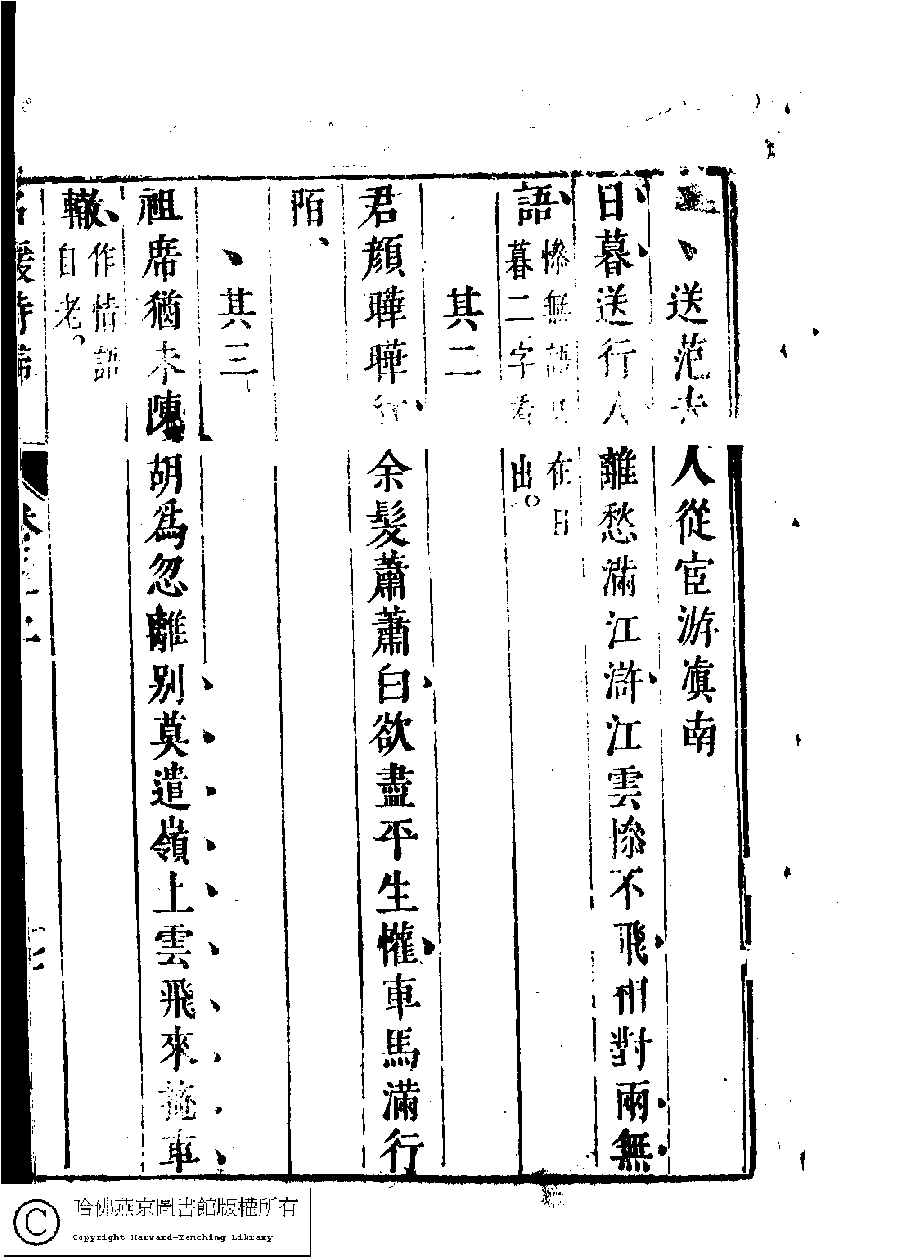 送范夫人從宦游滇南
日暮送行人離愁滿江滸江雲慘不飛相對兩無
語慘無語只在日
暮二字看出。
其二
君顏曄曄余髮蕭蕭白欲盡平生懽車馬滿行
陌
其三
祖席猶未陳胡爲忽離別莫遣嶺上雲飛來掩車
轍作情語
自老。
名媛詩歸
卷
哈佛燕京圖書館版權所有
Copyright Harvard-Yenching Library